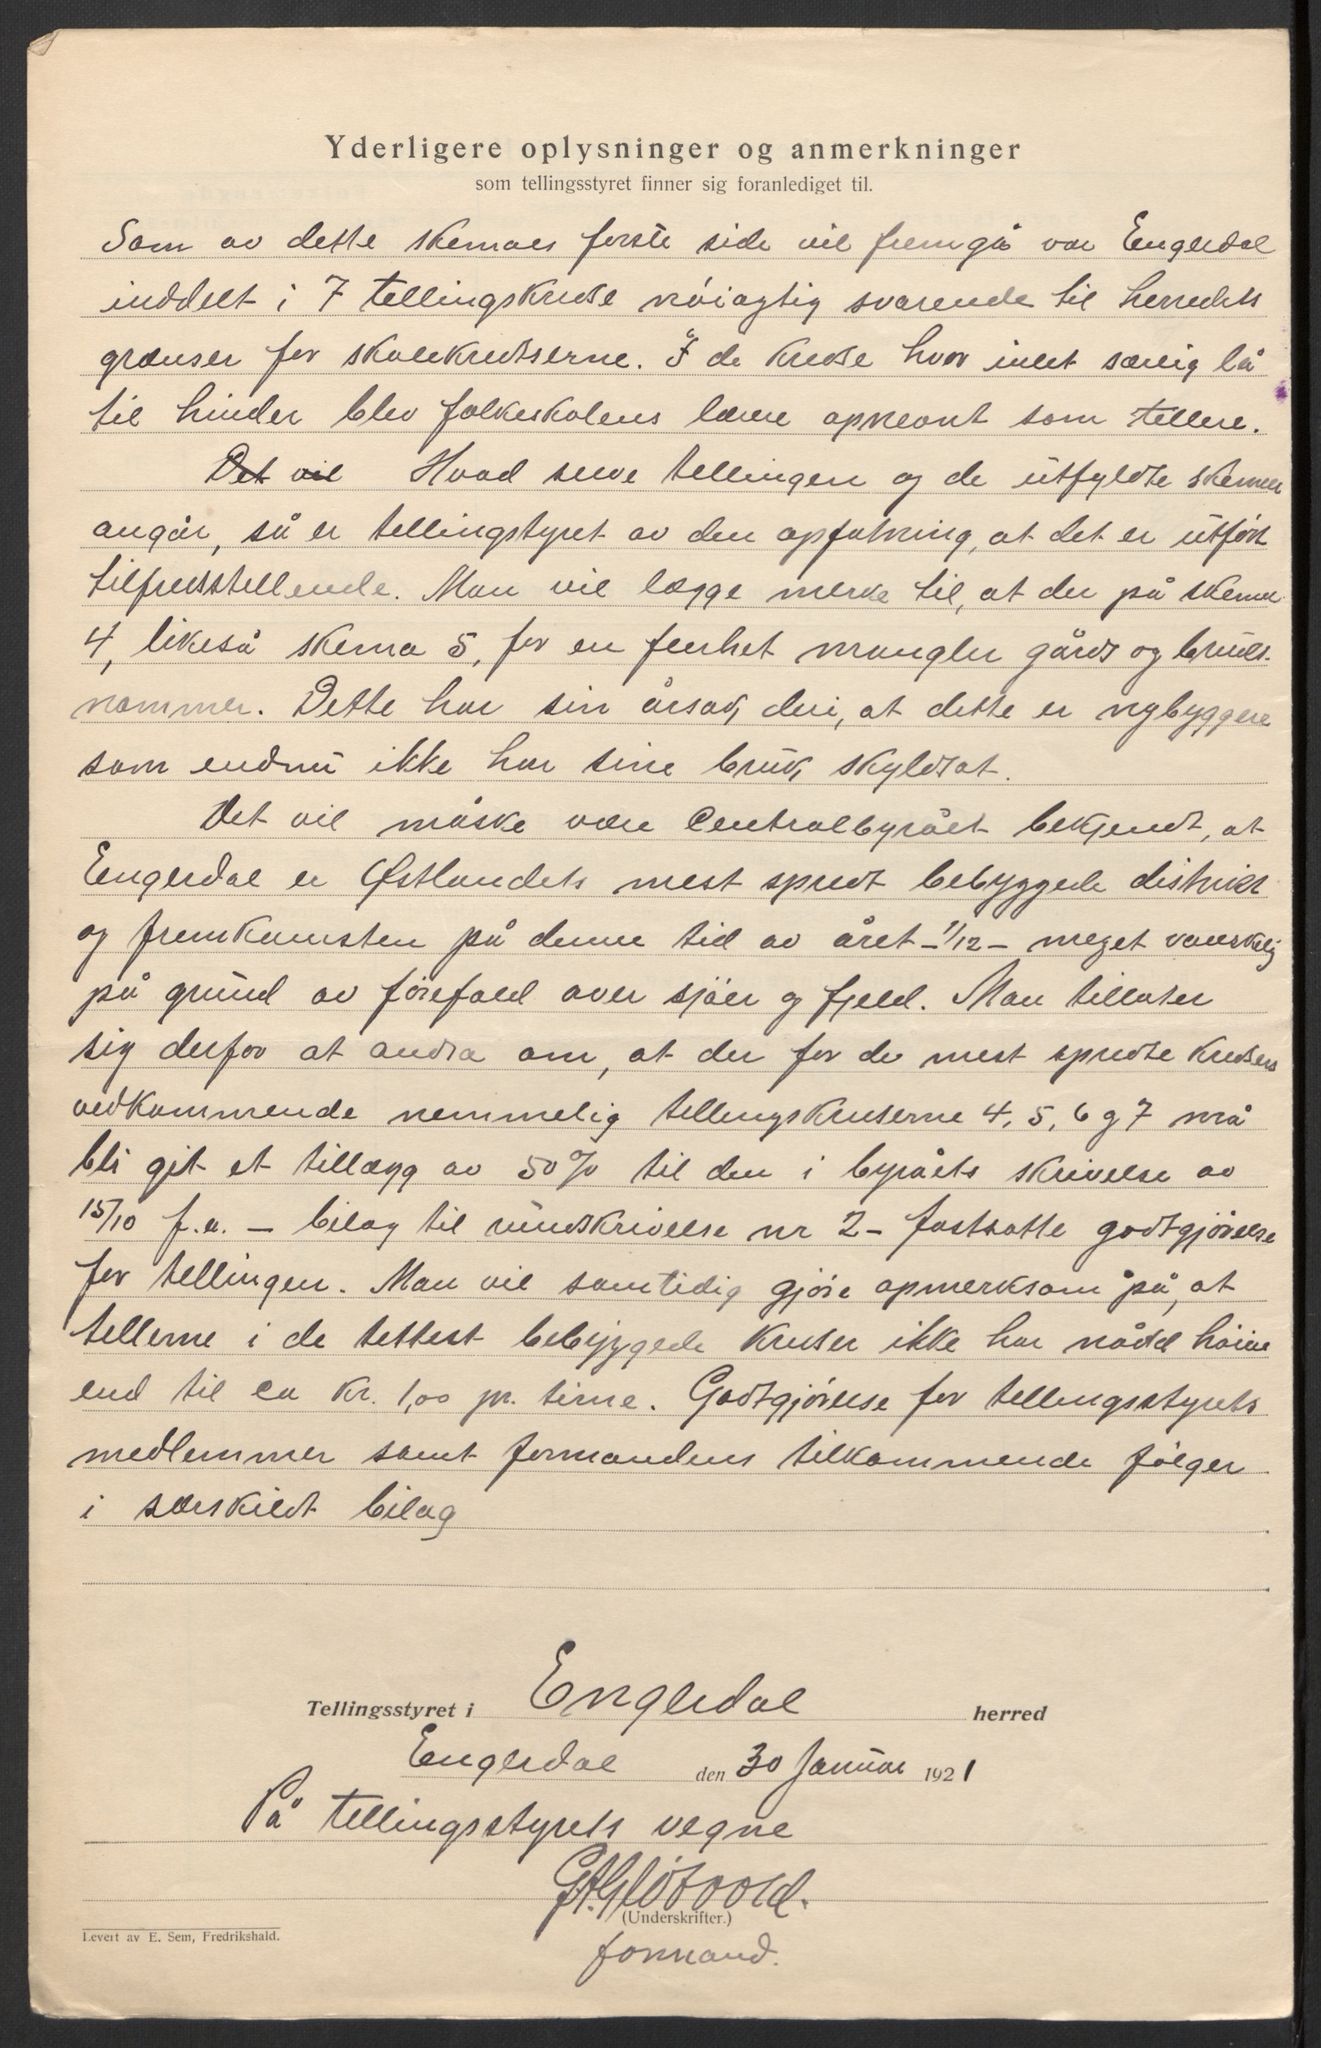 Yderligere oplysninger og anmerkninger
som tellingsstyret finner sig foranlediget til.
Som av dette skemaes første side vil fremgå var Engerdal
inddelt i 7 tellingskredse nöiagtig svarende til herredets
grænser for skolekredserne. I de kredse hvor intet særlig lå
til hinder blev folkeskolens lærere opnevnt som tellere.
Det vil Hvad selve tellingen og de utfyldte skemaer
angår, så er tellingstyret av den opfatning, at det er utfört
tilfredsstellende. Man vil lægge merke til, at der på skema
4, likeså skema 5, for en fenhet mangler gårds og bruks-
nommer. Dette har sin årsak deri, at dette er nybyggere
som endnu ikke har sine bruk skyldsat.
Det vil måske være Centralbyrået bekjendt, at
Engerdal er Østlandets mest spredt bebyggede distrikt
og fremkomsten på denne tid av året – 1/12 – meget vanskelig
på grund av förefald over sjöer og fjeld. Man tillater
sig derfor at andra om, at der for de mest spredte kredsers
vedkommende nemmelig tellingskredserne 4, 5, 6 og 7 må
bli git et tillægg av 50% til den i byråets skrivelse av
15/10 f.a. – bilag til rundskrivelse nr 2 – fastsatte godtgjörelse
for tellingen. Man vil samtidig gjöre opmerksom på, at
tellerne i de tettest bebyggede kredser ikke har nådd höiere
end til ca kr. 1,00 pr. time. Godtgjörelse for tellingsstyrets
medlemmer samt formandens tilkommende fölger
i særskildt bilag
Tellingsstyret i Engerdal herred
Engerdal den 30 Januar 1921
På tellingsstyrets vegne
G.A. Glötvold.
(Underskrifter.)
formand.
Levert av E. Sem, Fredrikshald.